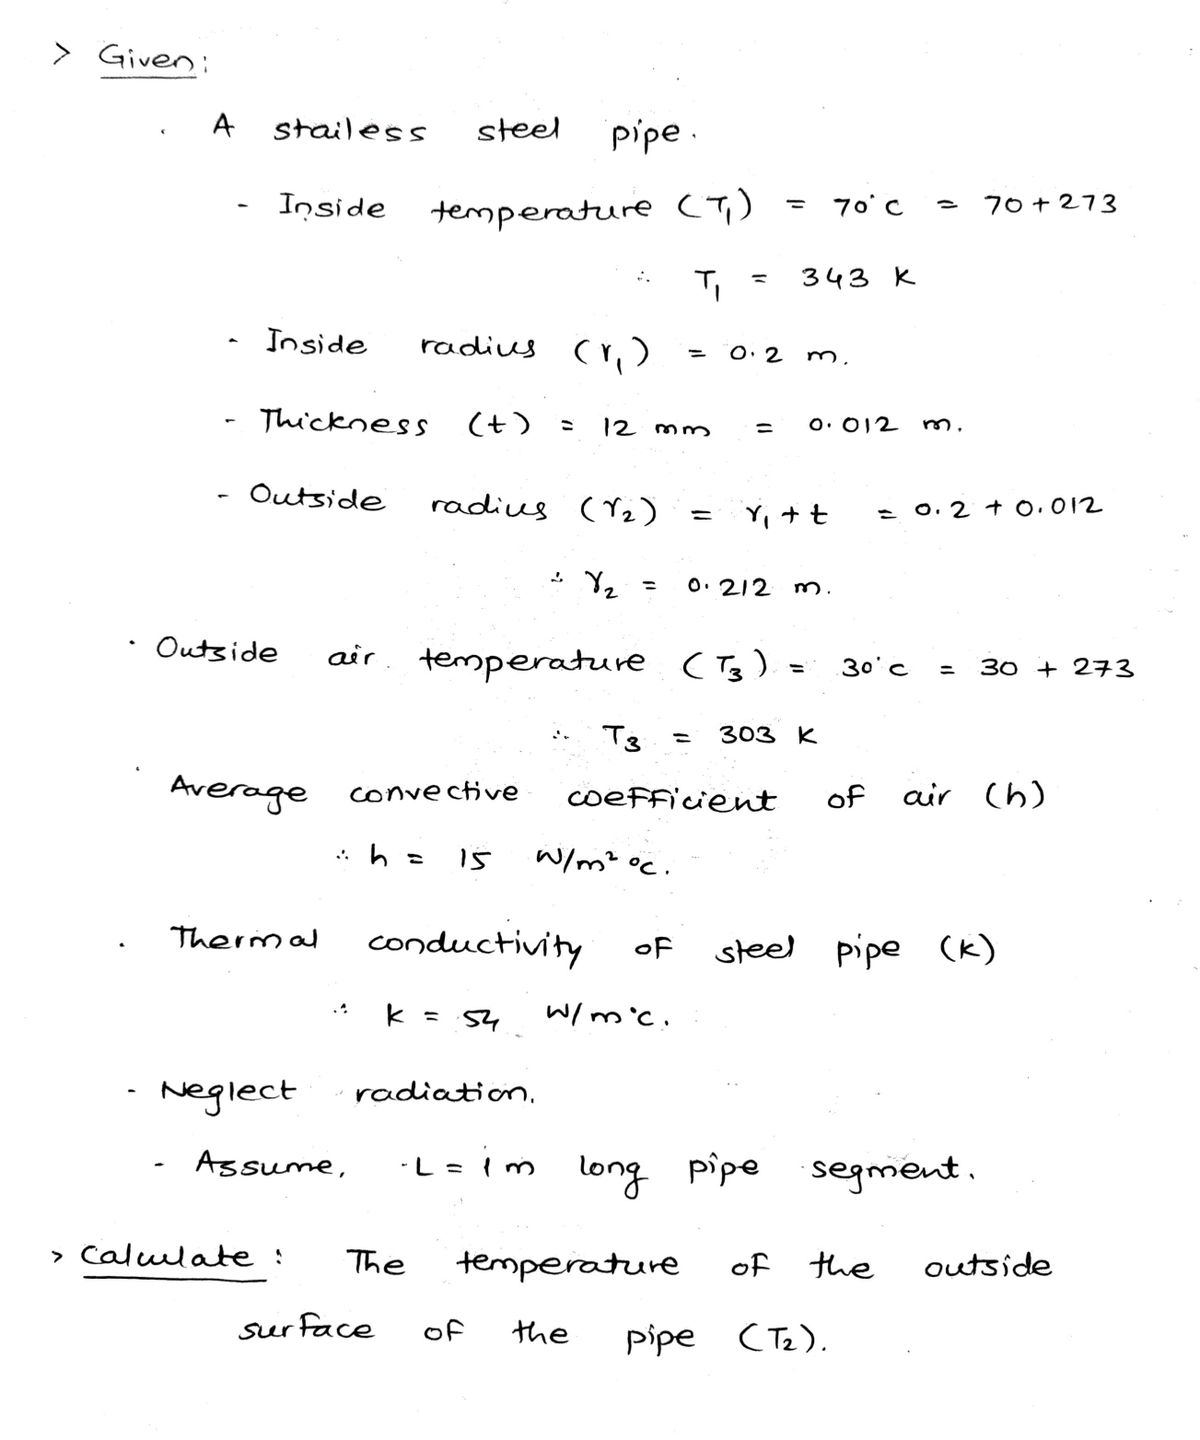 > Given:
. A stailess steel pipe.
- Inside temperature (T₁) = 70°c = 70 + 273
∴ T₁ = 343 K
- Inside radius (r₁) = 0.2 m.
- Thickness (t) = 12 mm = 0.012 m.
- Outside radius (r₂) = r₁ + t = 0.2 + 0.012
∴ r₂ = 0.212 m.
· Outside air temperature (T₃) = 30°c = 30 + 273
∴ T₃ = 303 K
· Average convective coefficient of air (h)
∴ h = 15 W/m² °c.
. Thermal conductivity of steel pipe (k)
∴ k = 54 W/m°c.
- Neglect radiation.
- Assume, L = 1 m long pipe segment.
> Calculate : The temperature of the outside
surface of the pipe (T₂).